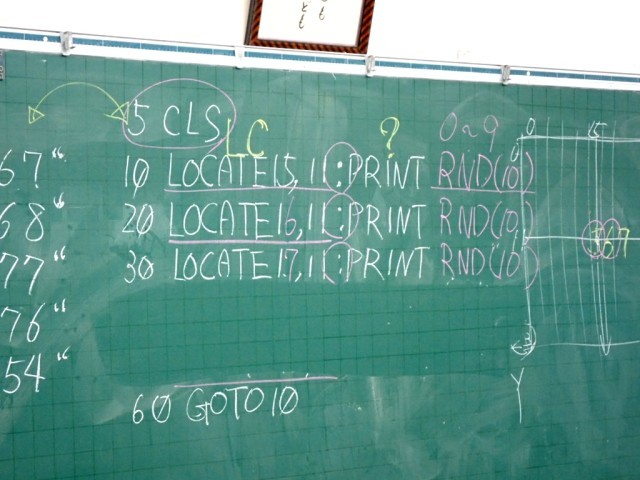 と
も
5 CLS
LC
?
0~9
67"
10 LOCATE15,11:PRINT RND(10)
68"
20 LOCATE16,11:PRINT RND(10)
77"
30 LOCATE17,11:PRINT RND(10)
76"
54"
60 GOTO10
0
15
0
767
23
Y